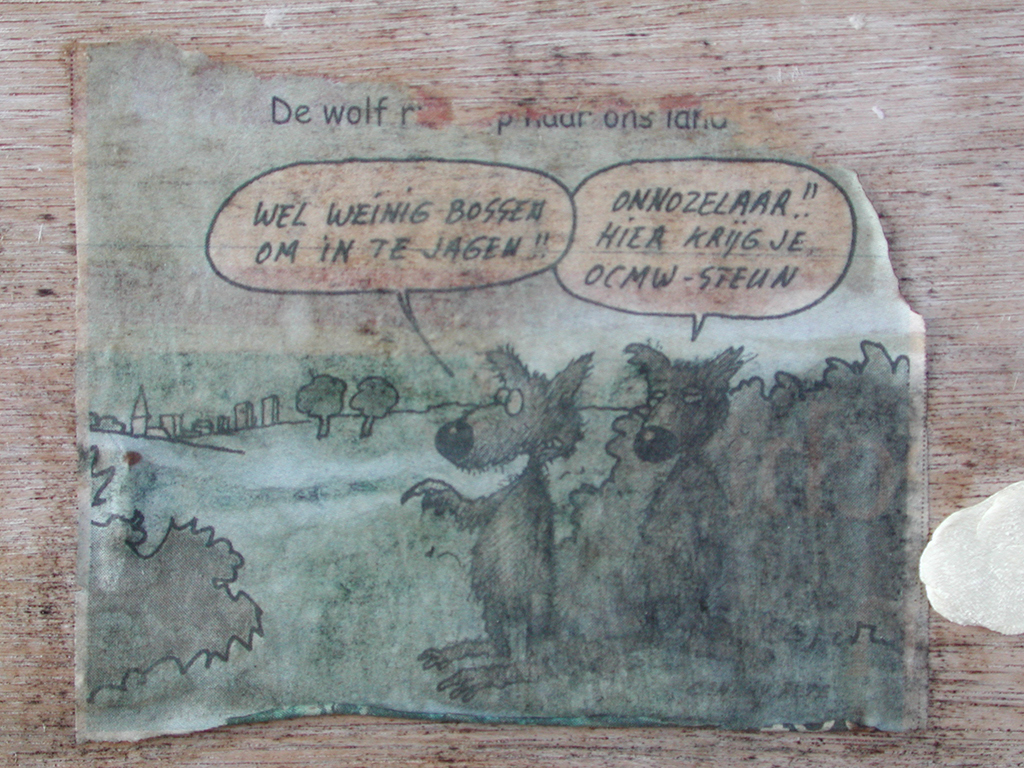 De wolf naar ons land
WEL WEINIG BOSSEN
OM IN TE JAGEN!!
ONNOZELAAR!!
HIER KRIJG JE
OCMW-STEUN